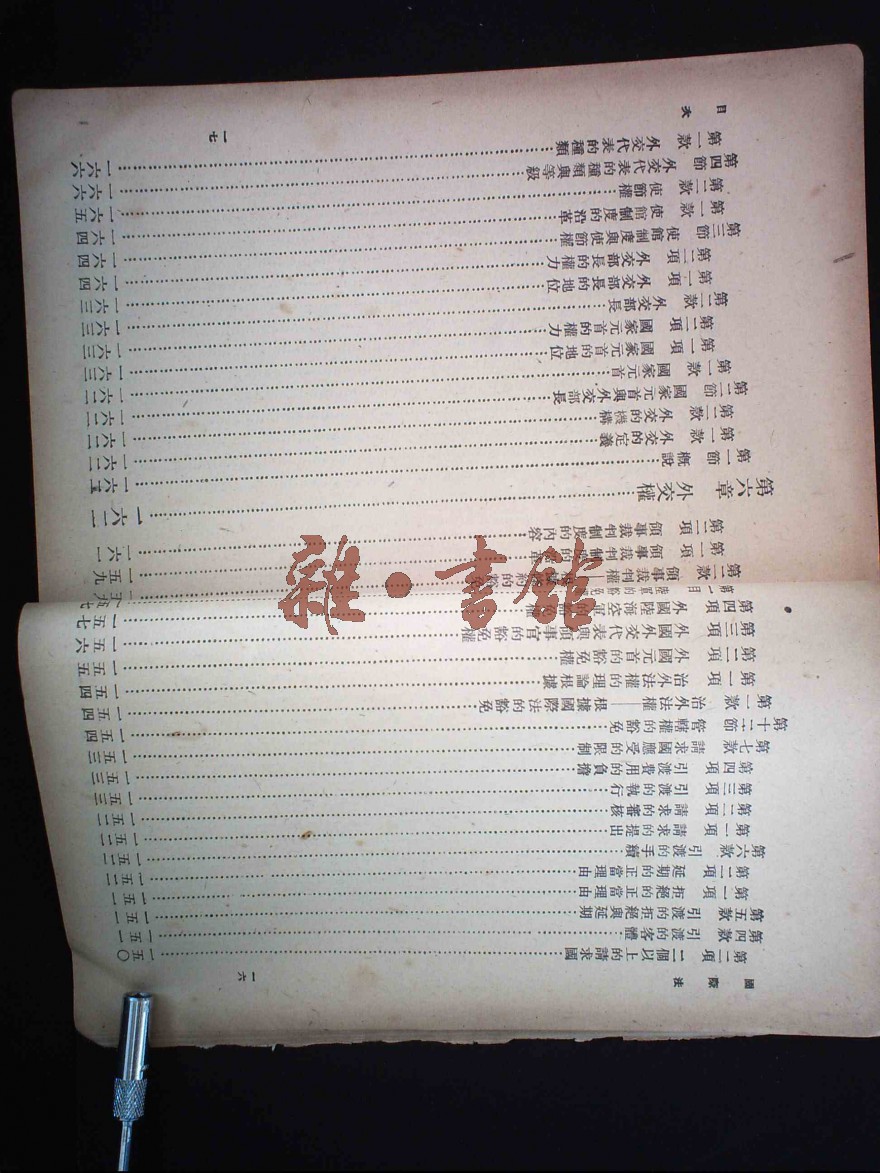 國際法
一六
第二項 二個以上的請求國……一五〇
第四款 引渡的客體……一五一
第五款 引渡的拒絕與延期……一五一
第一項 拒絕的正當理由……一五一
第二項 延期的正當理由……一五二
第六款 引渡的手續……一五二
第一項 請求的提出……一五二
第二項 請求的審核……一五二
第三項 引渡的執行……一五三
第四項 引渡費用的負擔……一五三
第七款 請求國應受的限制……一五三
第十二節 管轄權的豁免……一五四
第一款 治外法權——根據國際法的豁免……一五四
第一項 治外法權的理論根據……一五四
第二項 外國元首的豁免權……一五五
第三項 外國外交代表與領事官的豁免權……一五六
第四項 外國陸海空軍的豁免權……一五七
目次
一七
第二款 領事裁判權——根據條約的豁免……一五九
第一項 領事裁判制度的沿革……一五九
第二項 領事裁判制度的內容……一六一
第六章 外交權……一六二
第一節 概說……一六二
第一款 外交的定義……一六二
第二款 外交的機構……一六二
第二節 國家元首與外交部長……一六二
第一款 國家元首……一六二
第一項 國家元首的地位……一六三
第二項 國家元首的權力……一六三
第二款 外交部長……一六三
第一項 外交部長的地位……一六三
第二項 外交部長的權力……一六四
第三節 使館制度與使節權……一六四
第一款 使館制度的沿革……一六四
第二款 使節權……一六五
第四節 外交代表的種類與等級……一六六
第一款 外交代表的種類……一六六
雜·書館